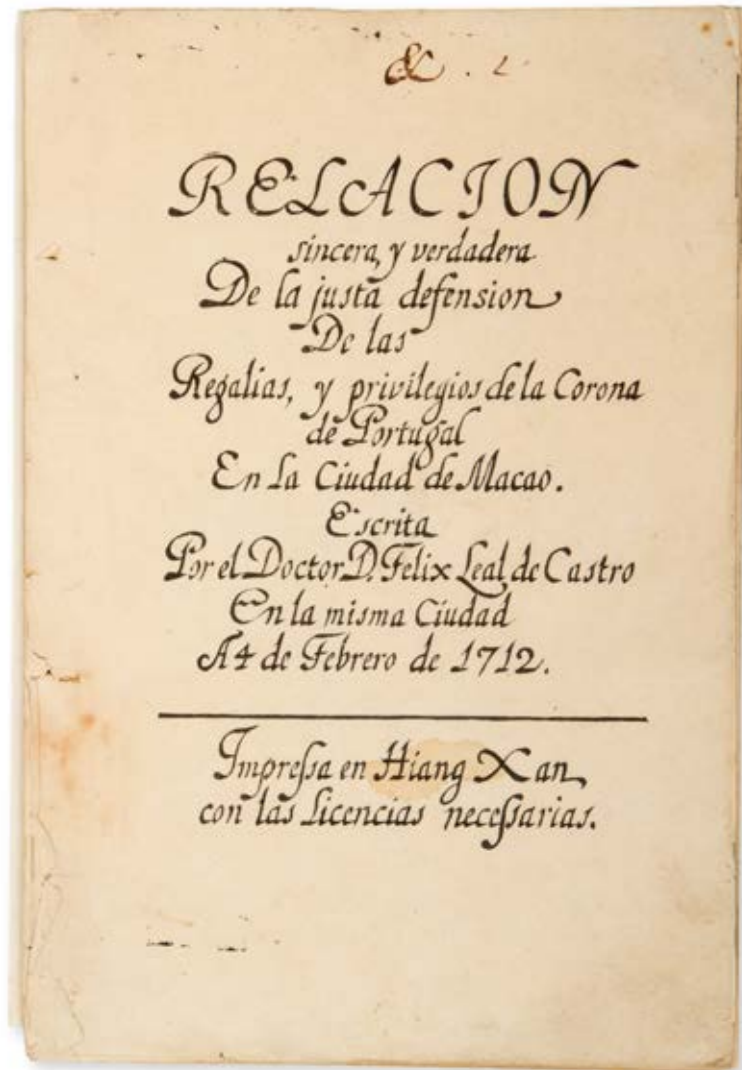 &. 2
RELACION
sincera, y verdadera
De la justa defension
De las
Regalias, y privilegios de la Corona
de Portugal
En la Ciudad de Macao.
Escrita
Por el Doctor D. Felix Leal de Castro
En la misma Ciudad
A 4 de Febrero de 1712.
Impreſsa en Hiang Xan
con las Licencias neceſsarias.